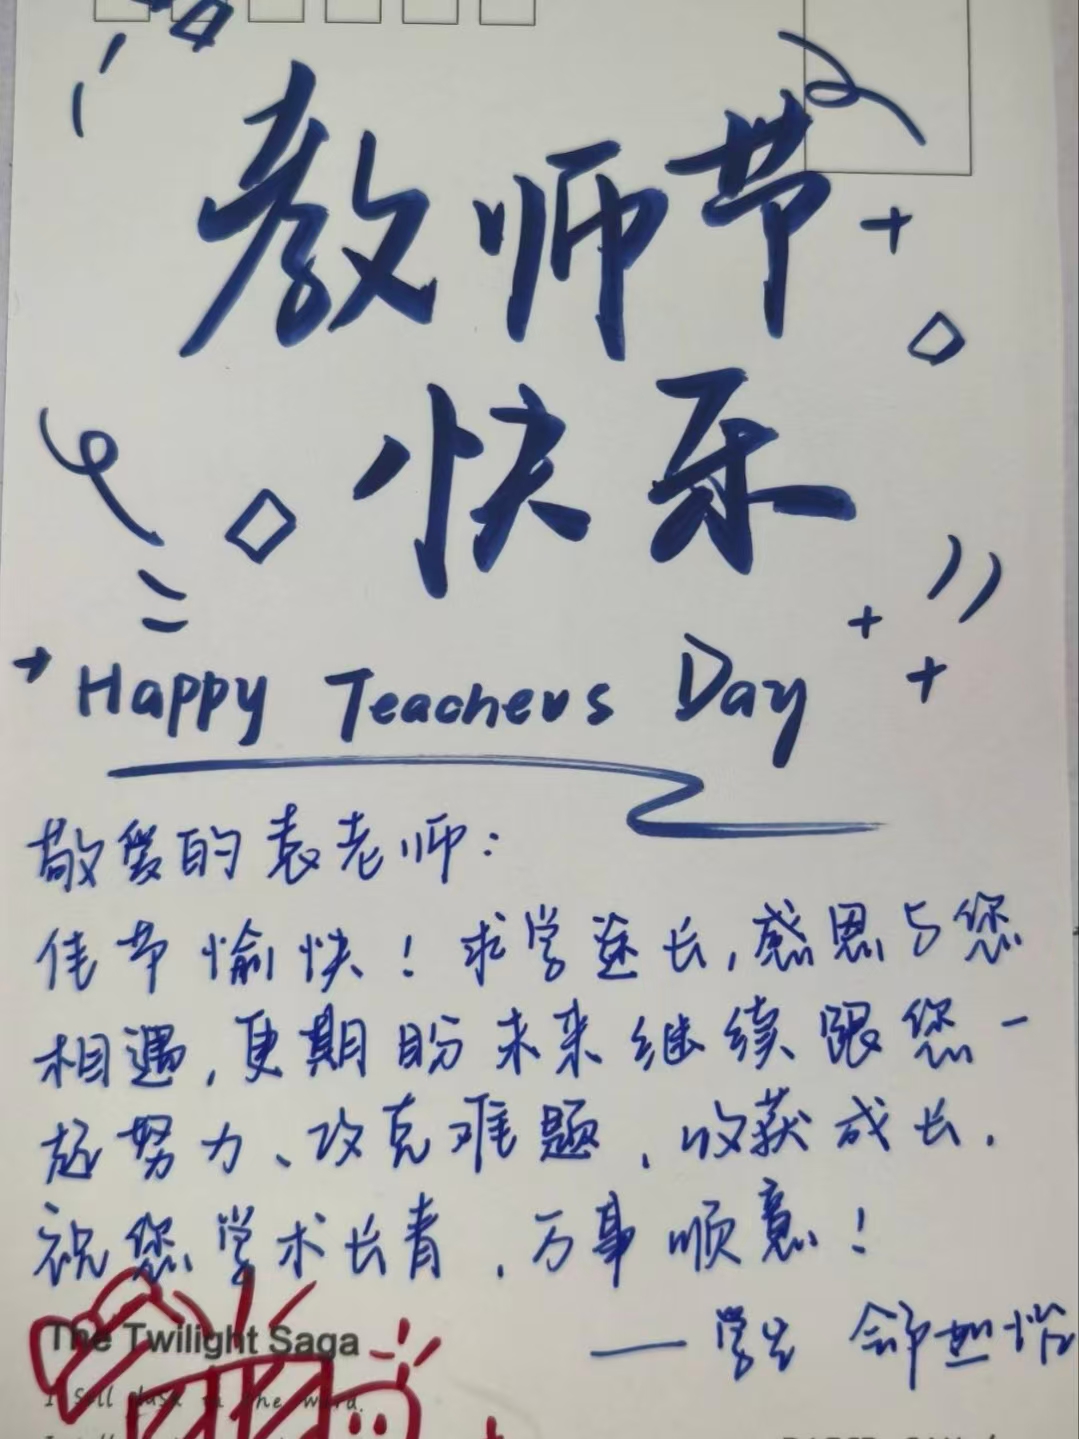 教师节
快乐
Happy Teachers Day
敬爱的袁老师：
佳节愉快！求学途长，感恩与您
相遇，更期盼未来继续跟您一
起努力、攻克难题，收获成长．
祝您学术长青，万事顺意！
——学生
The Twilight Saga
the